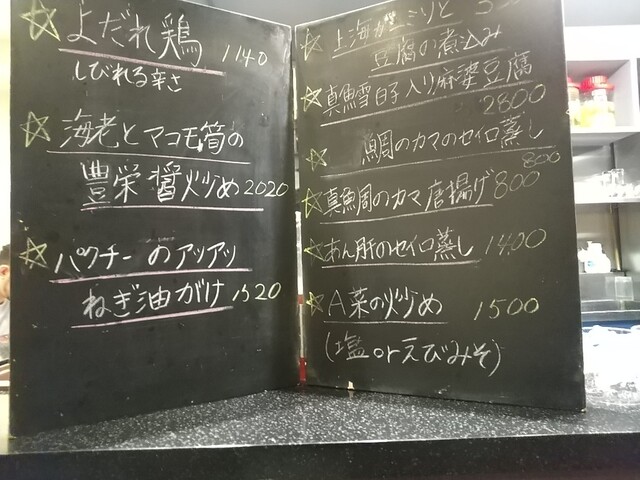 よだれ鶏 1140
しびれる辛さ
海老とマコモ筍の
豊栄醤炒め 2020
パクチーのアツアツ
ねぎ油がけ 1520
上海ガニミソと
豆腐の煮込み
真鱈白子入り麻婆豆腐
2800
鯛のカマのセイロ蒸し
800
真鯛のカマ唐揚げ 800
あん肝のセイロ蒸し 1400
A菜の炒め 1500
(塩orえびみそ)